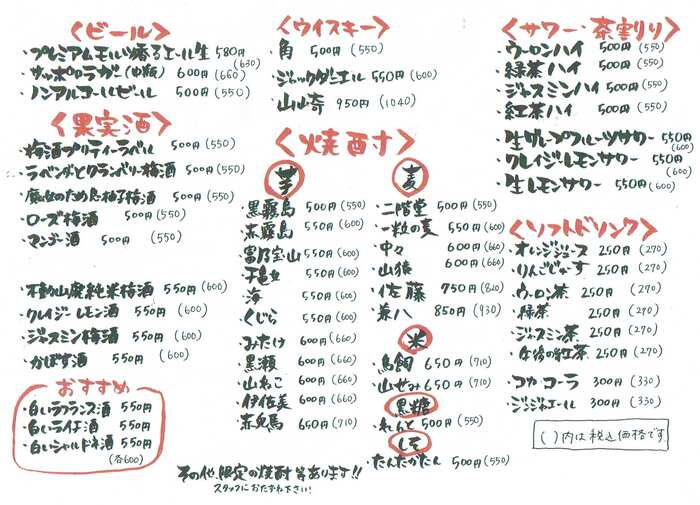 <ビール>
・プレミアムモルツ香るエール生 580円 (630)
・サッポロラガー(中瓶) 600円 (660)
・ノンアルコールビール 500円 (550)
<果実酒>
・梅酒プリティーラベル 500円 (550)
・ラベンダとクランベリー梅酒 500円 (550)
・魔女のため息柚子梅酒 500円 (550)
・ローズ梅酒 500円 (550)
・マンゴー酒 500円 (550)
・不動山廃純米梅酒 550円 (600)
・クレイジーレモン酒 550円 (600)
・ジャスミン梅酒 550円 (600)
・かぼす酒 550円 (600)
おすすめ
・白いラフランス酒 550円
・白いライチ酒 550円
・白いシャルドネ酒 550円
(各600)
<ウイスキー>
・角 500円 (550)
・ジャックダニエル 550円 (600)
・山崎 950円 (1040)
<焼酎>
芋
・黒霧島 500円 (550)
・赤霧島 550円 (600)
・富乃宝山 550円 (600)
・千亀女 550円 (600)
・海 550円 (600)
・くじら 550円 (600)
・みたけ 600円 (660)
・黒瀬 600円 (660)
・山ねこ 600円 (660)
・伊佐美 600円 (660)
・赤兎馬 650円 (710)
麦
・二階堂 500円 (550)
・一粒の麦 550円 (600)
・中々 600円 (660)
・山猿 600円 (660)
・佐藤 750円 (820)
・兼八 850円 (930)
米
・鳥飼 650円 (710)
・山せみ 650円 (710)
黒糖
・れんと 500円 (550)
しそ
・たんたかたん 500円 (550)
その他、限定の焼酎等あります!!
スタッフにおたずね下さい!
<サワー・茶割り>
・ウーロンハイ 500円 (550)
・緑茶ハイ 500円 (550)
・ジャスミンハイ 500円 (550)
・紅茶ハイ 500円 (550)
・生グレープフルーツサワー 550円 (600)
・クレイジーレモンサワー 550円 (600)
・生レモンサワー 550円 (600)
<ソフトドリンク>
・オレンジジュース 250円 (270)
・りんごじゅーす 250円 (270)
・ウーロン茶 250円 (270)
・緑茶 250円 (270)
・ジャスミン茶 250円 (270)
・午後の紅茶 250円 (270)
・コカ・コーラ 300円 (330)
・ジンジャエール 300円 (330)
( )内は税込価格です